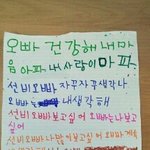 오빠 건강해 내 마
음 아파. 내 사랑이 마 파.
선비오빠. 자꾸자꾸 생각나
오빠 내 생각해
선비 오빠 보고싶어 오빠 나 보고
싶어
선비오빠 나 많이 보고싶어 오빠